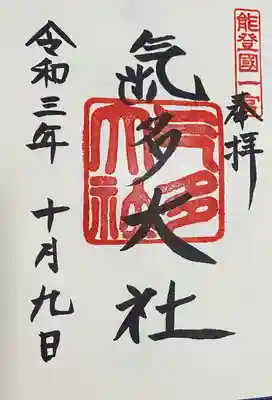 能登國一宮
奉拝
氣多大社
氣多大社
令和三年 十月九日